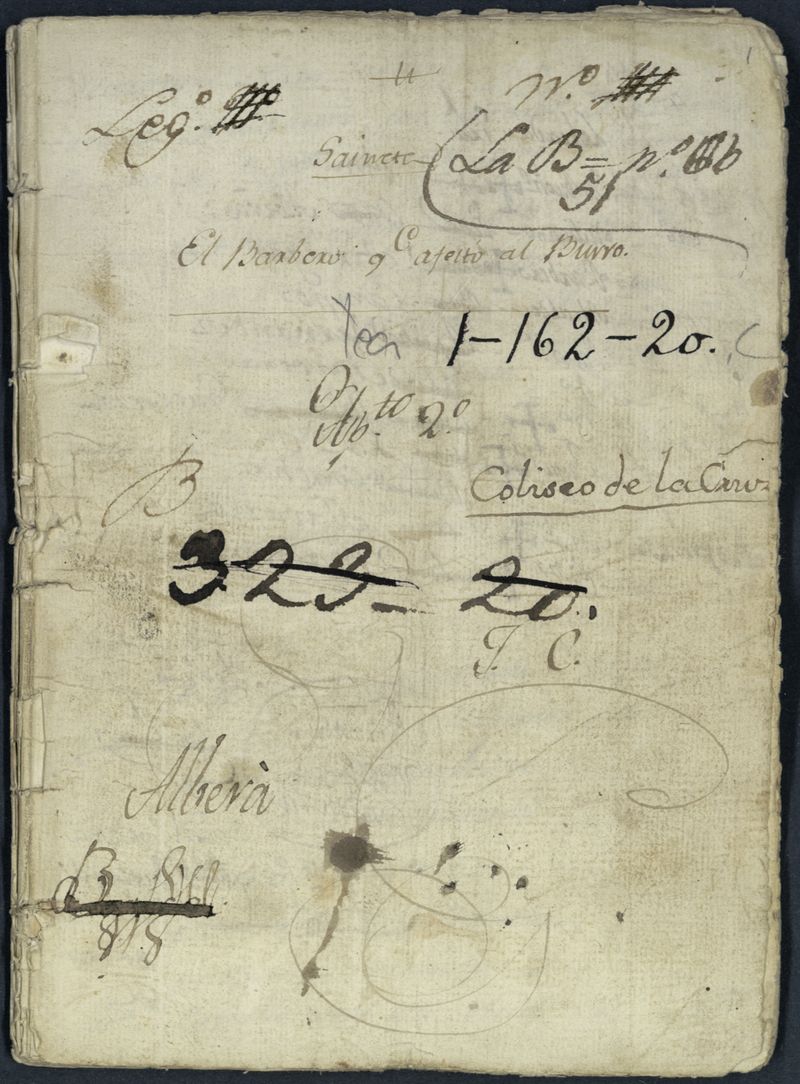 Leg.º
N.º
Sainete (La B= nº
51
El Barbero q.e afeitó al Burro.
Tea 1-162-20.
Ap.to 2.º
B
Coliseo de la Cruz
323- 20.
T. C.
Alberà
B